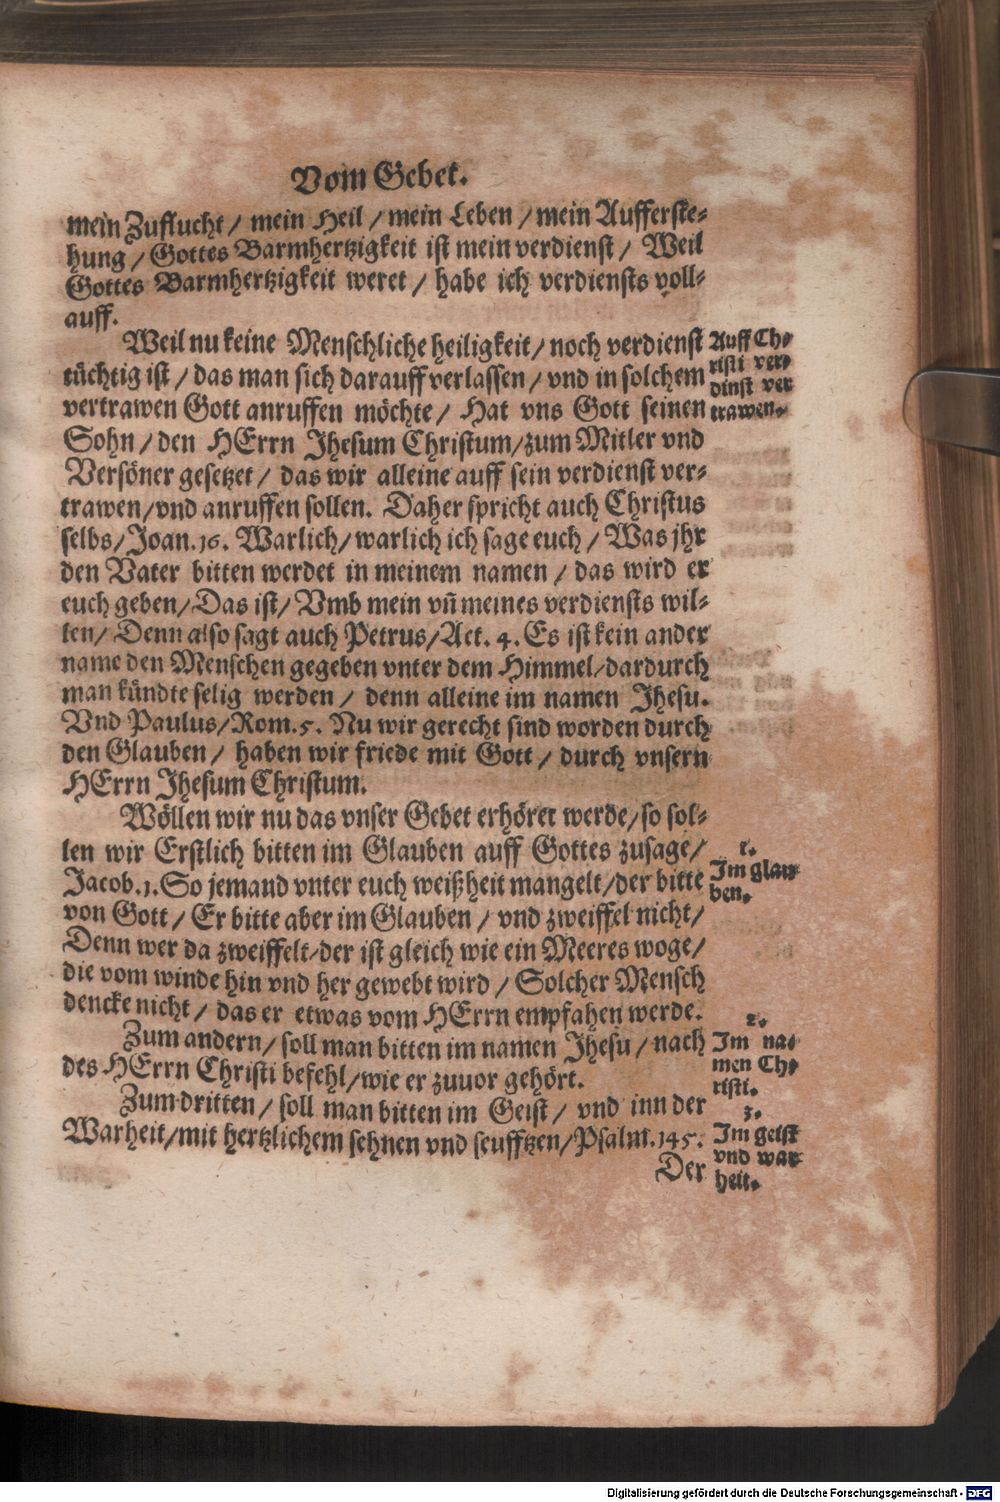 Vom Gebet.
mein Zuflucht / mein Heil / mein Leben / mein Aufferste-
hung / Gottes Barmhertzigkeit ist mein verdienst / Weil
Gottes Barmhertzigkeit weret / habe ich verdiensts voll-
auff.
Weil nu keine Menschliche heiligkeit / noch verdienst
tüchtig ist / das man sich darauff verlassen / vnd in solchem
vertrawen Gott anruffen möchte / Hat vns Gott seinen
Sohn / den HErrn Jhesum Christum / zum Mitler vnd
Versöner gesetzet / das wir alleine auff sein verdienst ver-
trawen / vnd anruffen sollen. Daher spricht auch Christus
selbs / Joan. 16. Warlich / warlich ich sage euch / Was jhr
den Vater bitten werdet in meinem namen / das wird er
euch geben / Das ist / Vmb mein vñ meines verdiensts wil-
len / Denn also sagt auch Petrus / Act. 4. Es ist kein ander
name den Menschen gegeben vnter dem Himmel / dardurch
man kündte selig werden / denn alleine im namen Jhesu.
Vnd Paulus / Rom. 5. Nu wir gerecht sind worden durch
den Glauben / haben wir friede mit Gott / durch vnsern
HErrn Jhesum Christum.
Wöllen wir nu das vnser Gebet erhöret werde / so sol-
len wir Erstlich bitten im Glauben auff Gottes zusage /
Jacob. 1. So jemand vnter euch weißheit mangelt / der bitte
von Gott / Er bitte aber im Glauben / vnd zweiffel nicht /
Denn wer da zweiffelt / der ist gleich wie ein Meeres woge /
die vom winde hin vnd her gewebt wird / Solcher Mensch
dencke nicht / das er etwas vom HErrn empfahen werde.
Zum andern / soll man bitten im namen Jhesu / nach
des HErrn Christi befehl / wie er zuuor gehört.
Zum dritten / soll man bitten im Geist / vnd inn der
Warheit / mit hertzlichem sehnen vnd seufftzen / Psalm. 145.
Der
Auff Chri-
risti ver-
dinst ver
trawen.
1.
Im glau
ben.
2.
Im na-
men Ch-
risti.
3.
Im geist
vnd war
heit.
Digitalisierung gefördert durch die Deutsche Forschungsgemeinschaft - DFG